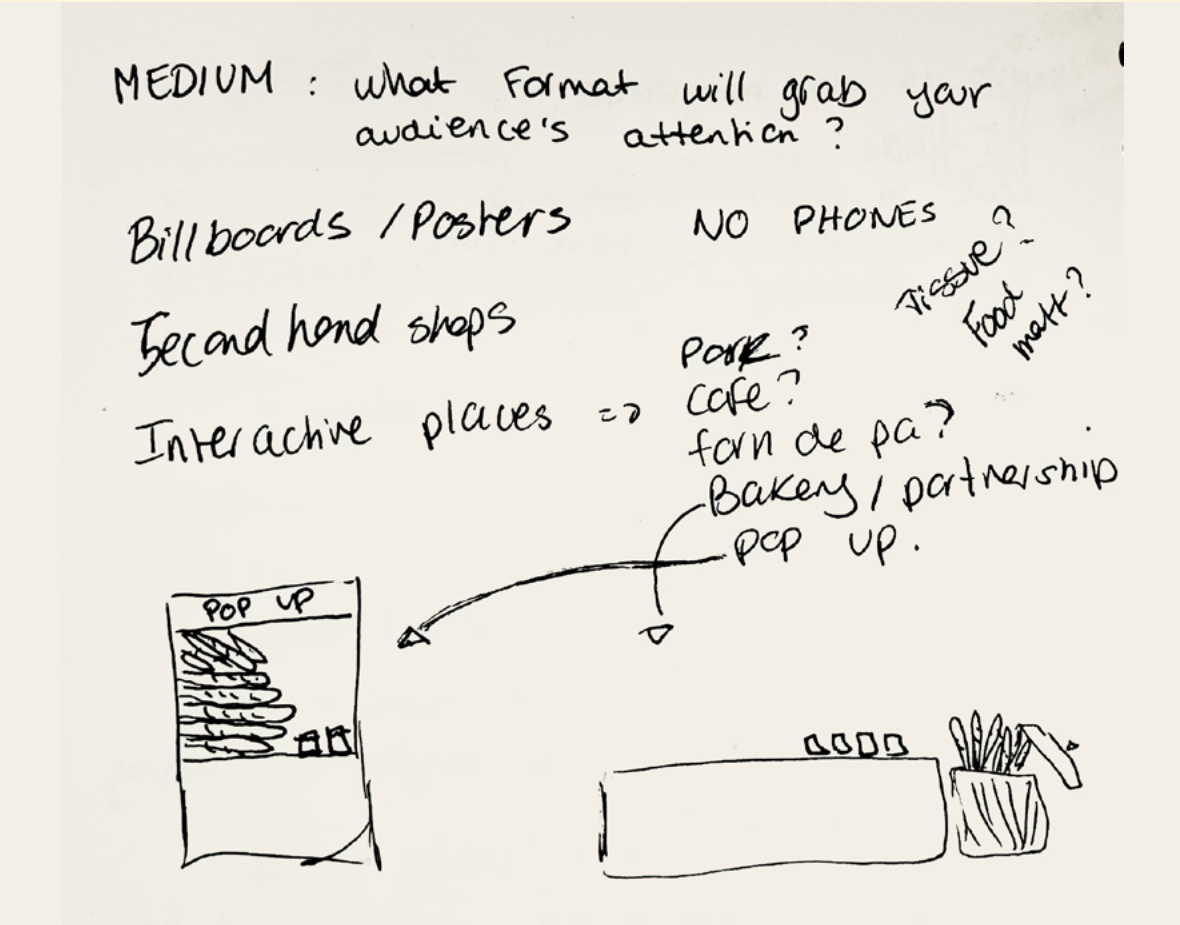 MEDIUM : what Format will grab your
audience's attention ?
Billboards / Posters
NO PHONES
Tissue ?
Food
matt ?
Second hand shops
Park ?
Interactive places =>
cafe ?
forn de pa ?
Bakery / partnership
POP UP .
POP UP